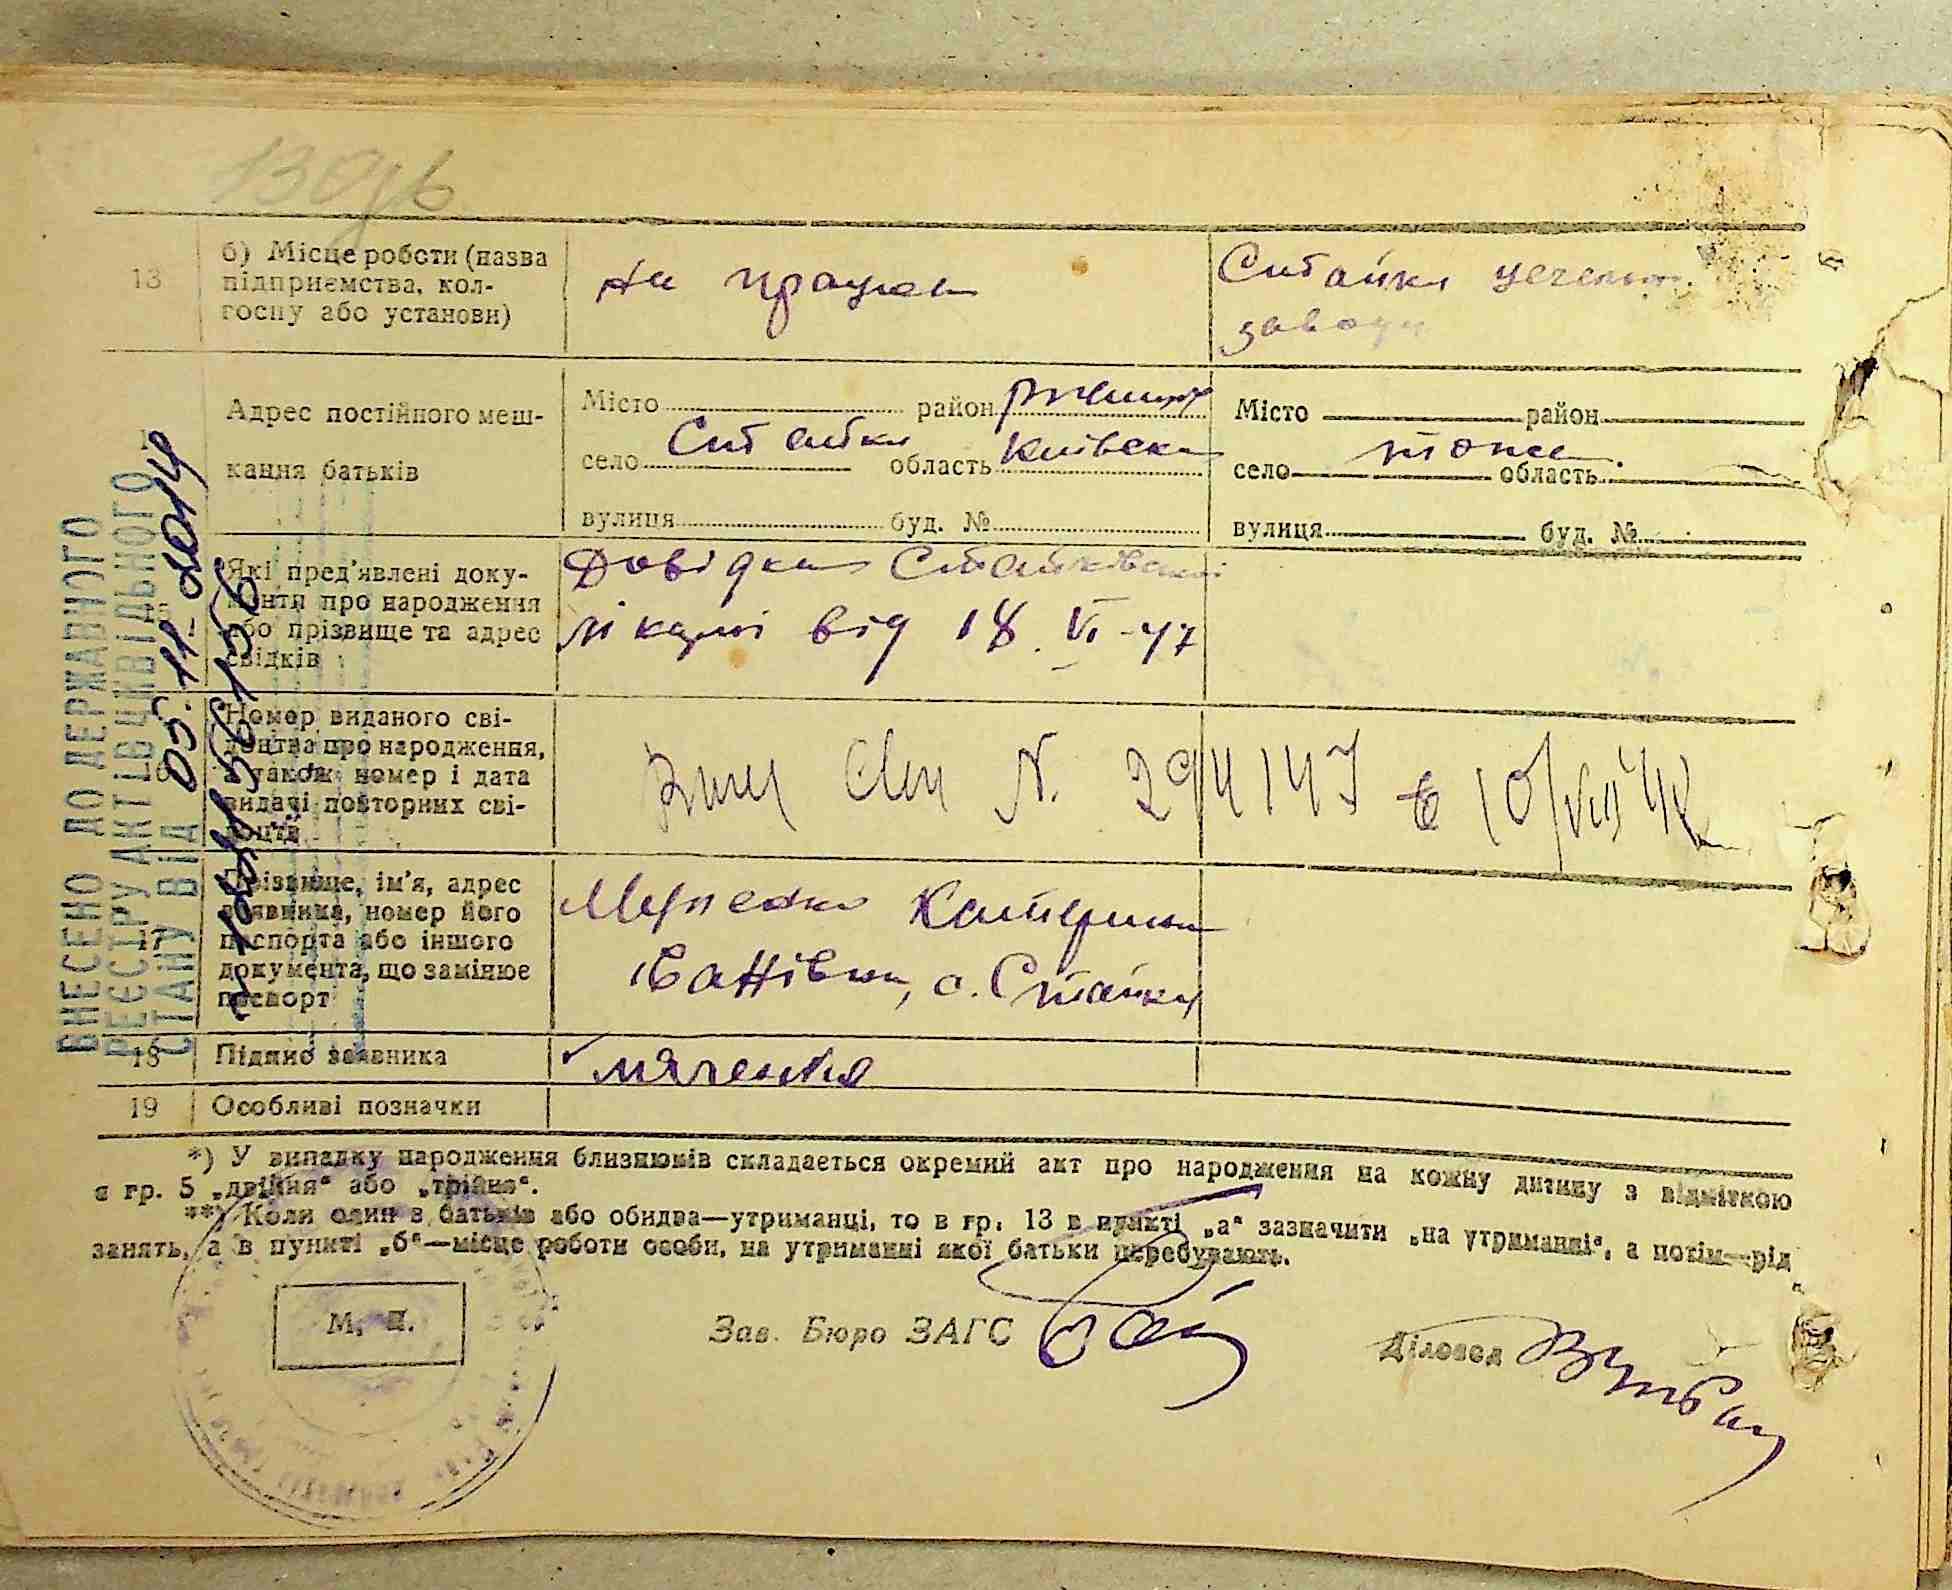 13
б) Місце роботи (назва
підприємства, кол-
госпу або установи)
не працює
Стайки
заводу
Адрес постійного меш-
кання батьків
Місто район
село Стайки область Київська
вулиця буд. №
Місто район
село тоже область
вулиця буд. №
Які пред'явлені доку-
менти про народження
або прізвище та адрес
свідків
Довідка Стайківської
лікарні від 18.VI-47
16
Номер виданого сві-
доцтва про народження,
а також номер і дата
видачі повторних сві-
доцтв
N. 294147
17
Прізвище, ім'я, адрес
заявника, номер його
паспорта або іншого
документа, що замінює
паспорт
Катерина
Іванівна, с. Стайки
18
Підпис заявника
19
Особливі позначки
*) У випадку народження близнюків складається окремий акт про народження на кожну дитину з відміткою
в гр. 5 „двійня“ або „трійня“.
**) Коли один з батьків або обидва—утриманці, то в гр. 13 в пункті „а“ зазначити „на утриманні“, а потім—рід
занять, а в пункті „б“—місце роботи особи, на утриманні якої батьки перебувають.
М. П.
Зав. Бюро ЗАГС
Діловод
ВНЕСЕНО ДО ДЕРЖАВНОГО
РЕЄСТРУ АКТІВ ЦИВІЛЬНОГО
СТАНУ ВІД 05.11.2014